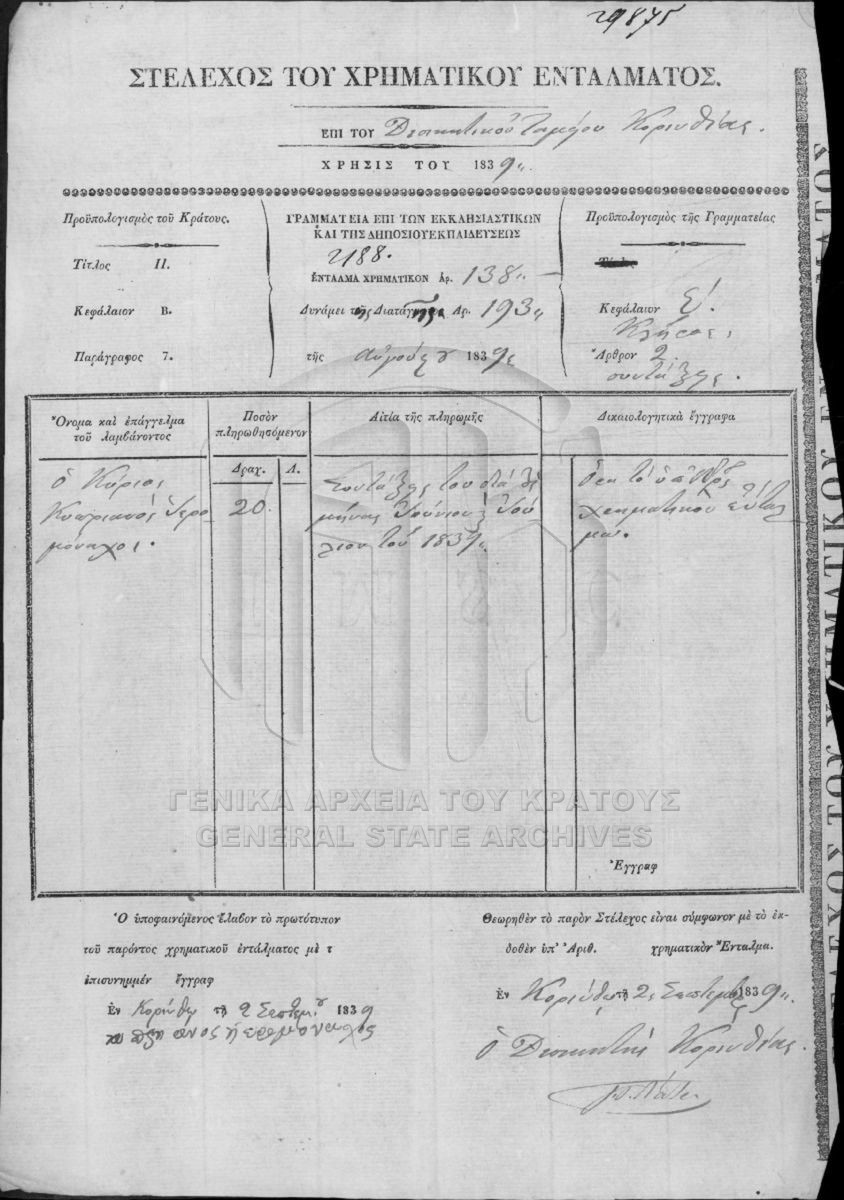 29875
ΣΤΕΛΕΧΟΣ ΤΟΥ ΧΡΗΜΑΤΙΚΟΥ ΕΝΤΑΛΜΑΤΟΣ.
ΕΠΙ ΤΟΥ Διοικητικοῦ Ταμείου Κορινθίας.
ΧΡΗΣΙΣ ΤΟΥ 1839
Προϋπολογισμὸς τοῦ Κράτους.
Τίτλος ΙΙ.
Κεφάλαιον Β.
Παράγραφος 7.
ΓΡΑΜΜΑΤΕΙΑ ΕΠΙ ΤΩΝ ΕΚΚΛΗΣΙΑΣΤΙΚΩΝ
ΚΑΙ ΤΗΣ ΔΗΠΟΣΙΟΥΕΚΠΑΙΔΕΥΣΕΩΣ
2188.
ΕΝΤΑΛΜΑ ΧΡΗΜΑΤΙΚΟΝ Αρ. 138
Δυνάμει τῆς Διαταγῆς Αρ. 193
τῆς Αὐγούστου 1839
Προϋπολογισμὸς τῆς Γραμματείας
Κεφάλαιον
Κλῆρος
Ἄρθρον 2.
συντάξεις.
Ὄνομα καὶ ἐπάγγελμα
τοῦ λαμβάνοντος
Ποσὸν
πληρωθησόμενον
Δραχ. Λ.
Αἰτία τῆς πληρωμῆς
Δικαιολογητικὰ ἔγγραφα
ὁ Κύριος
Κυπριανός Ἱερο
μόναχος.
20.
Συντάξεις του διὰ
μήνας Ἰούνιον Ἰού
λιον τοῦ 1839
χρηματικοῦ ἐντάλ
μα.
Ἔγγραφ
Ὁ ὑποφαινόμενος ἔλαβον τὸ πρωτότυπον
τοῦ παρόντος χρηματικοῦ ἐντάλματος μὲ τ
ἐπισυνημμέν ἔγγραφ
Ἐν Κορίνθῳ τῇ 2 Σεπτεμ. 1839
Θεωρηθὲν τὸ παρὸν Στέλεχος εἶναι σύμφωνον μὲ τὸ ἐκ-
δοθὲν ὑπ' Ἀριθ. χρηματικὸν Ἔνταλμα.
Ἐν Κορίνθῳ τῇ 2 Σεπτεμβ 1839
ὁ Διοικητής Κορινθίας.
ΓΕΝΙΚΑ ΑΡΧΕΙΑ ΤΟΥ ΚΡΑΤΟΥΣ
GENERAL STATE ARCHIVES